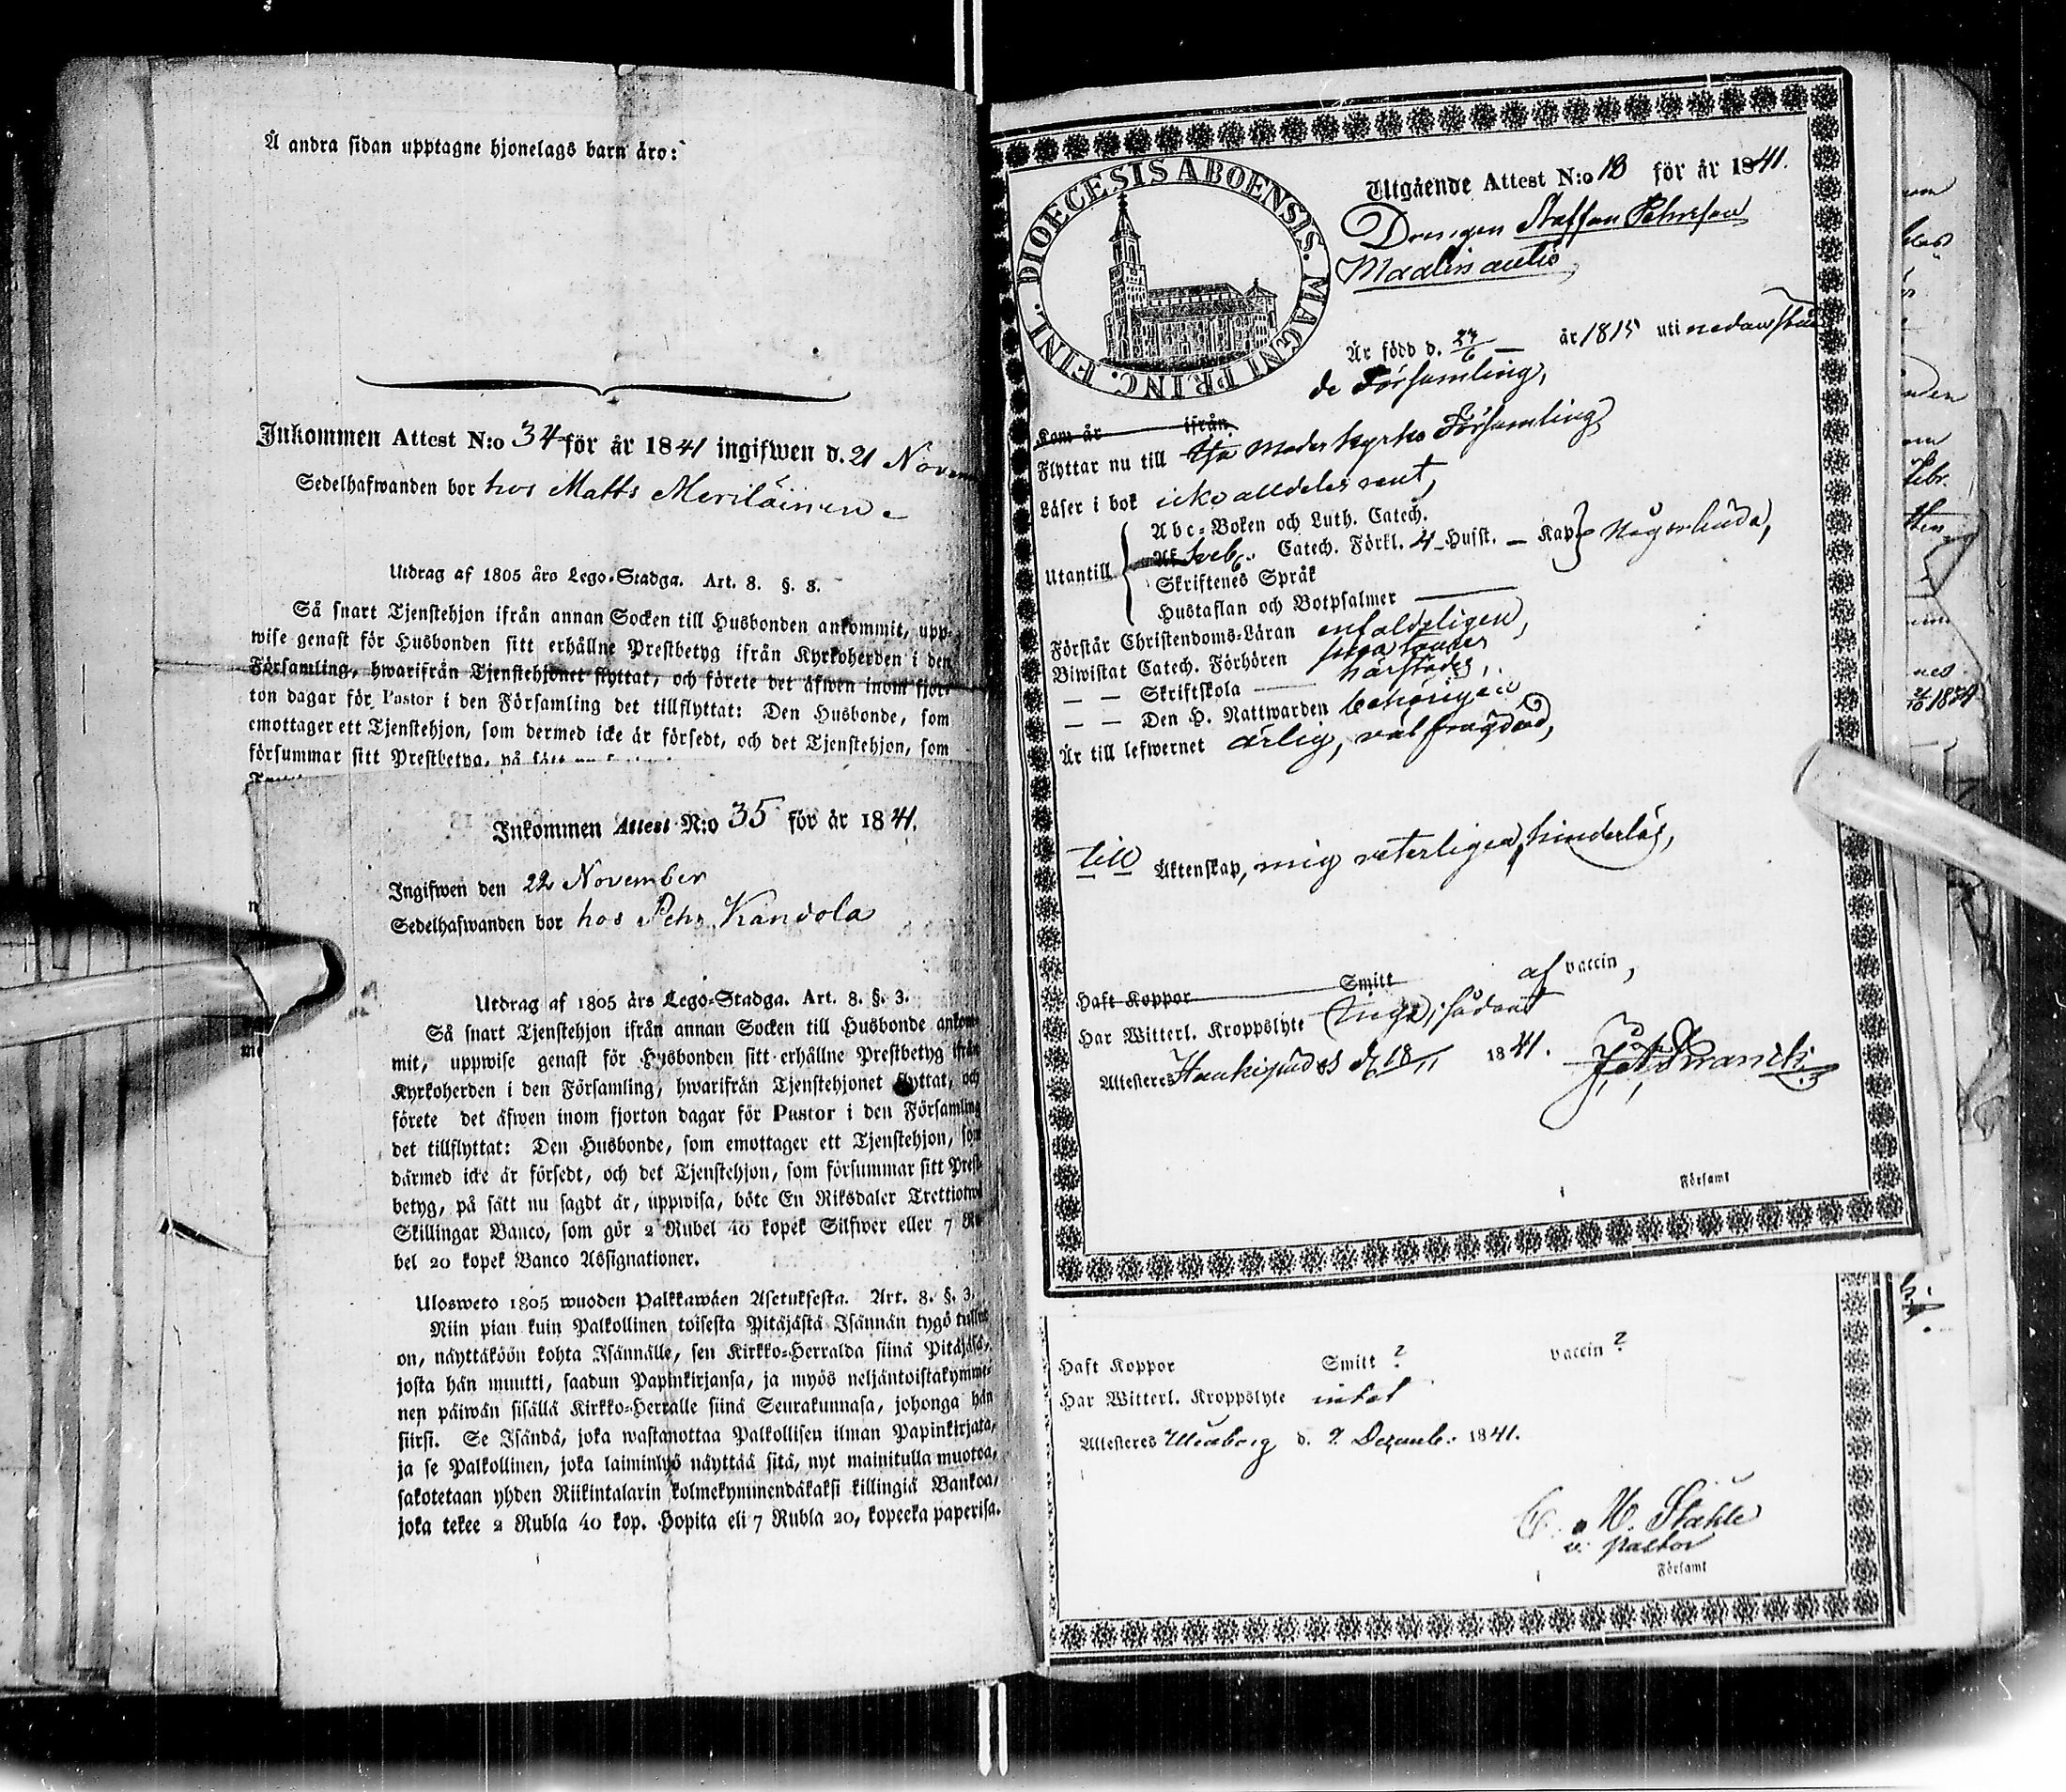 Å andra sidan upptagne hjonelags barn äro:
Inkommen Attest N:o 34 för år 1841 ingifwen d. 21 Novem
Sedelhafwanden bor hos Matts Meriläinen
Utdrag af 1805 års Lego-Stadga. Art. 8. §. 3.
Så snart Tjenstehjon ifrån annan Socken till Husbonden ankommit, upp-
wise genast för Husbonden sitt erhållne Prestbetyg ifrån Kyrkoherden i den
Församling, hwarifrån Tjenstehjonet flyttat, och förete det äfwen inom fjor-
ton dagar för Pastor i den Församling det tillflyttat: Den Husbonde, som
emottager ett Tjenstehjon, som dermed icke är försedt, och det Tjenstehjon, som
försummar sitt Prestbetyg, på sätt
Inkommen Attest N:o 35 för år 1841.
Ingifwen den 22 November
Sedelhafwanden bor hos Pehr Kandola
Utdrag af 1805 års Lego-Stadga. Art. 8. §. 3.
Så snart Tjenstehjon ifrån annan Socken till Husbonde ankom-
mit, uppwise genast för Husbonden sitt erhållne Prestbetyg ifrån
Kyrkoherden i den Församling, hwarifrån Tjenstehjonet flyttat, och
förete det äfwen inom fjorton dagar för Pastor i den Församling
det tillflyttat: Den Husbonde, som emottager ett Tjenstehjon, som
därmed icke är försedt, och det Tjenstehjon, som försummar sitt Prest-
betyg, på sätt nu sagdt är, uppwisa, böte En Riksdaler Trettiotwå
Skillingar Banco, som gör 2 Rubel 40 kopek Silfwer eller 7 Ru-
bel 20 kopek Banco Assignationer.
Ulosweto 1805 wuoden Palkkawäen Asetuksesta. Art. 8. §. 3.
Niin pian kuin Palkollinen toisesta Pitäjästä Isännän tygö tullut
on, näyttäköön kohta Isännälle, sen Kirkko-Herralda siinä Pitäjäsä,
josta hän muutti, saadun Papinkirjansa, ja myös neljäntoistakymme-
nen päiwän sisällä Kirkko-Herralle siinä Seurakunnasa, johonga hän
siirsi. Se Isändä, joka wastanottaa Palkollisen ilman Papinkirjata,
ja se Palkollinen, joka laiminlyö näyttää sitä, nyt mainitulla muotoa,
sakotetaan yhden Riikintalarin kolmekymmendäkaksi killingiä Bankoa,
joka tekee 2 Rubla 40 kop. Hopita eli 7 Rubla 20, kopeeka paperisa.
DIOECESIS ABOENSIS. MAGNI PRINC. FINL.
Utgående Attest N:o 18 för år 1841.
Drengen Staffan Pehrsson
Maalismaa
Är född d. 27/6 år 1815 uti nedanstån
de Församling,
Kom år ifrån
Flyttar nu till Ijo Moderkyrko Församling
Läser i bok icke alldeles rent,
Abc-Boken och Luth. Catech.
Utantill Af Sveb. Catech. Förkl. 4 Husst. — Kap någorlunda,
Skriftenes Språk
Hustaflan och Botpsalmer
Förstår Christendoms-Läran enfaldeligen,
Biwistat Catech. Förhören
— — Skriftskola härstädes,
— — Den H. Nattwarden behörigen
Är till lefwernet ärlig, välfrägdad,
till Äktenskap, mig veterligen, hinderlös,
Haft Koppor Smitt af vaccin,
Har Witterl. Kroppslyte inga, sådant
Attesteres Haukipudas d. 18/11 1841.
Församl
Haft Koppor Smitt ? vaccin ?
Har Witterl. Kroppslyte intet
Attesteres Uleåborg d. 9. Decemb: 1841.
C. W. Ståhle
v. pastor
Församl